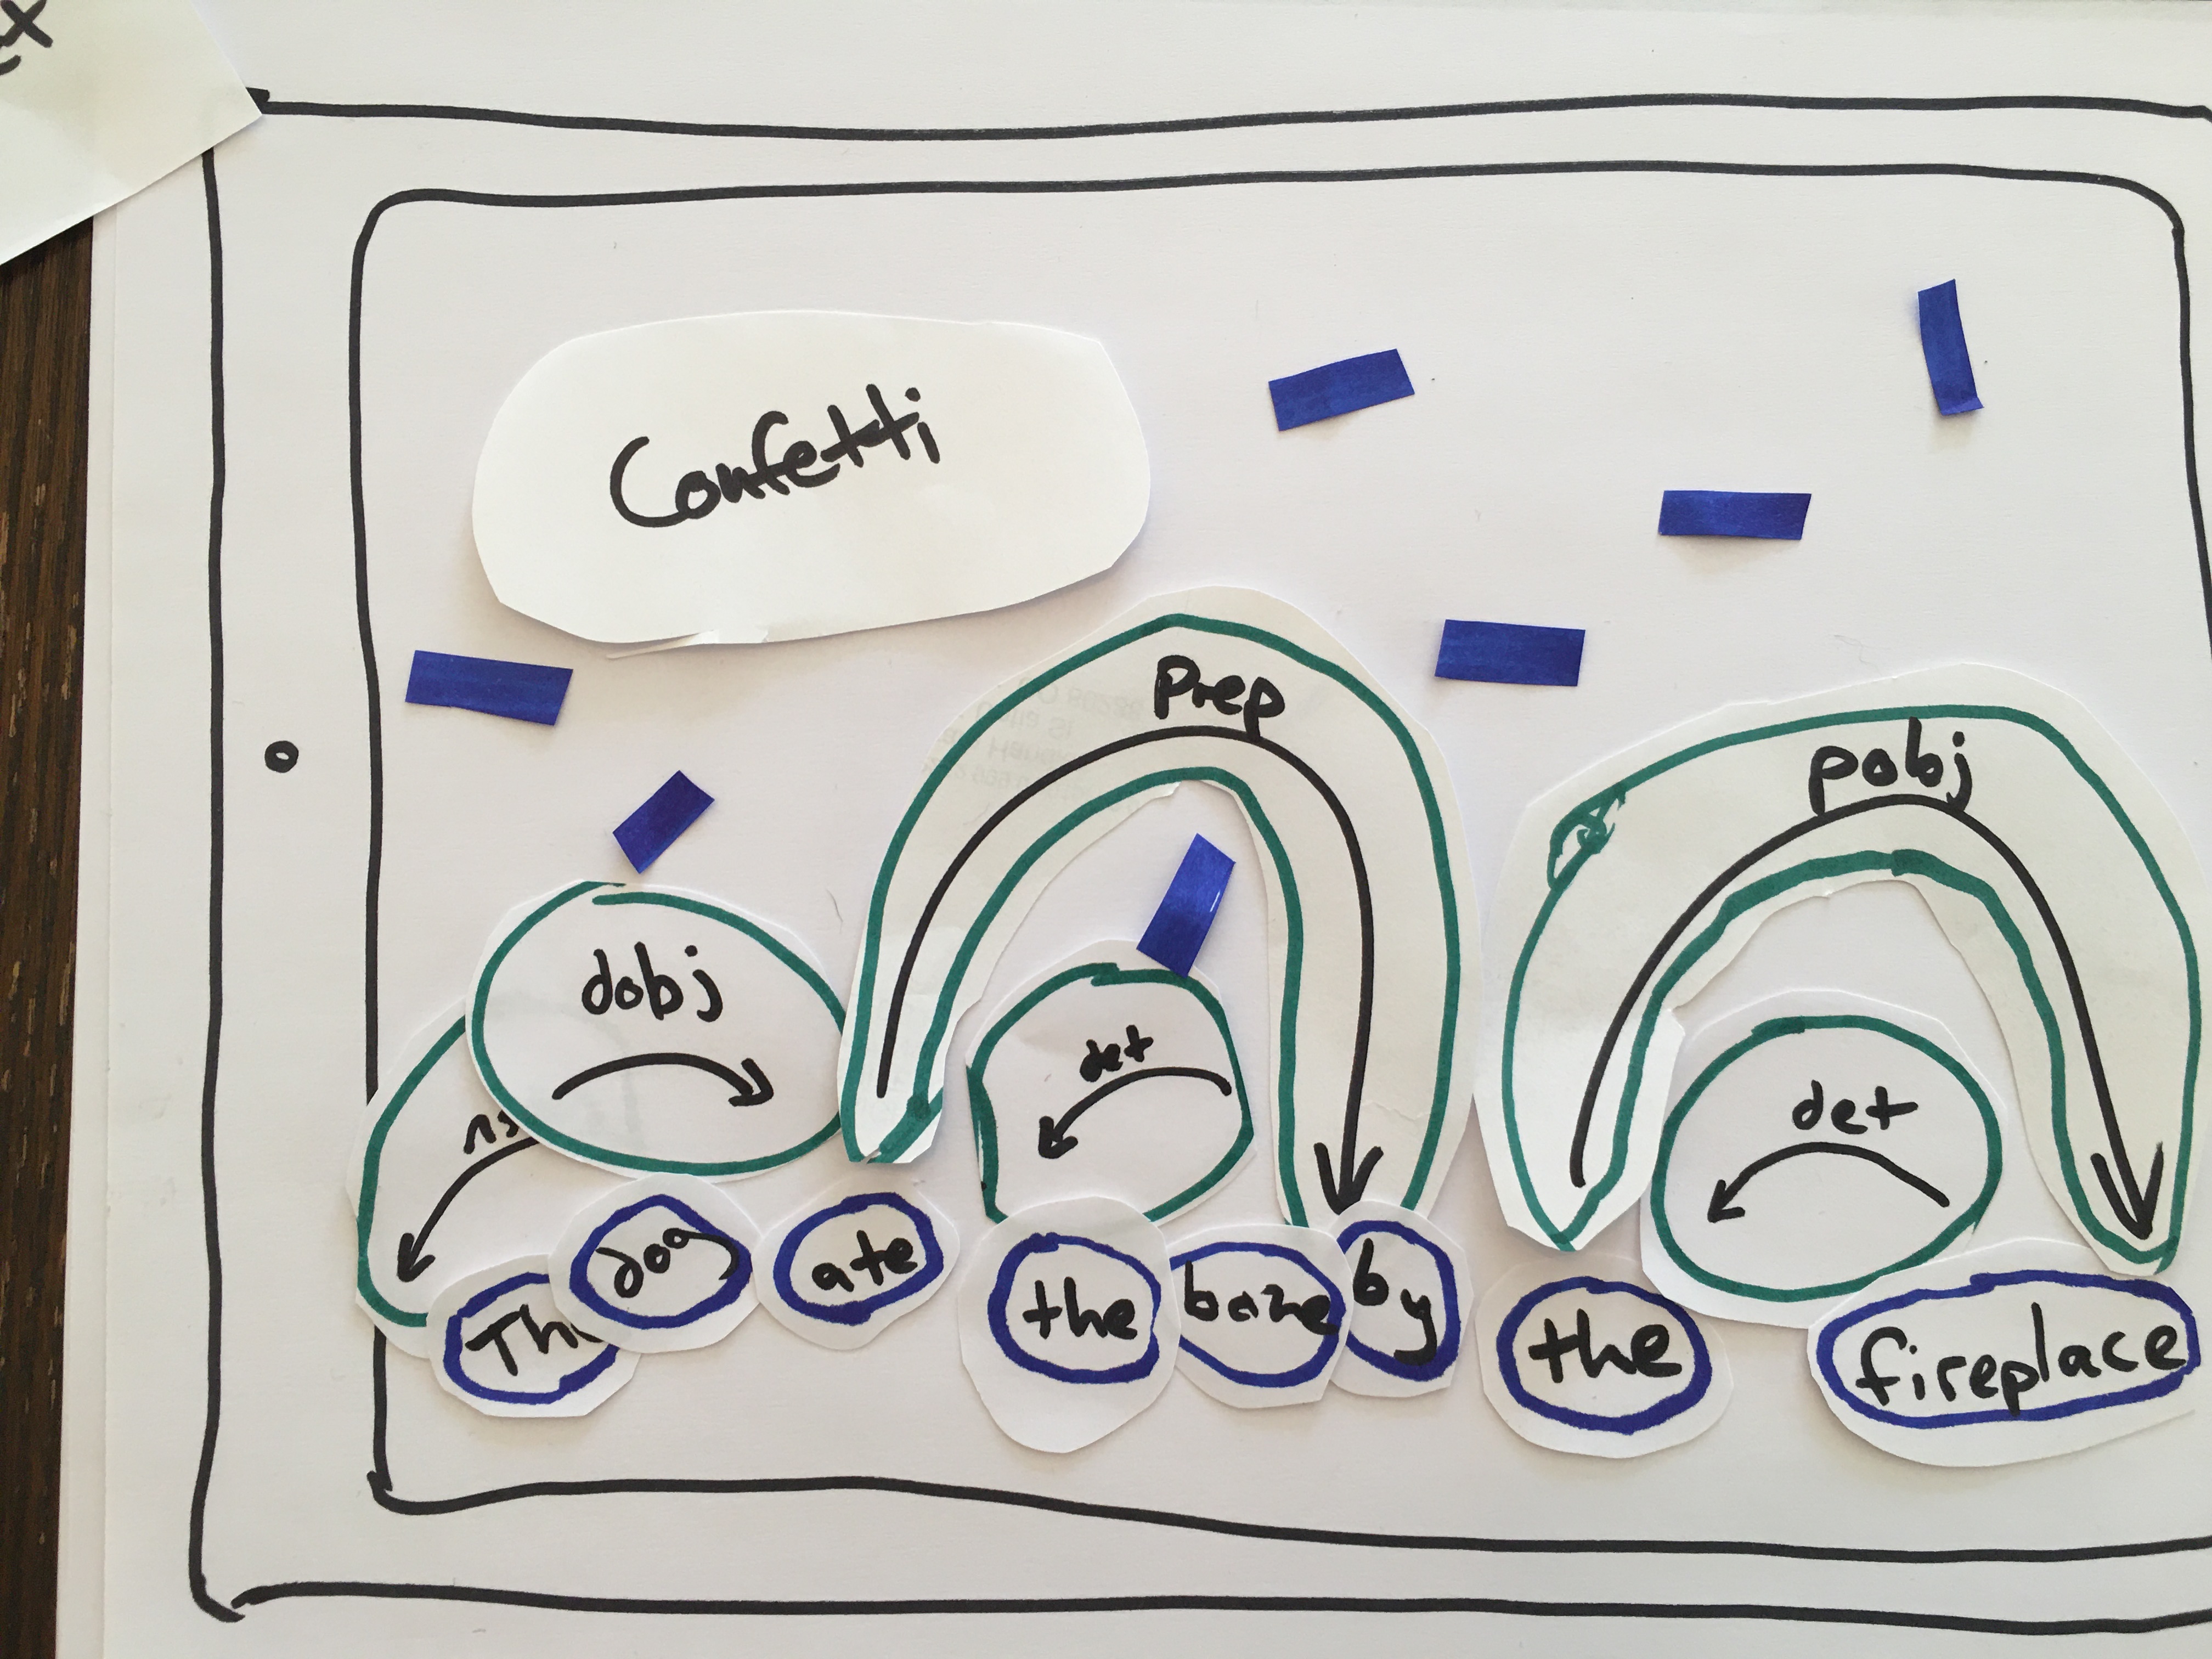 Confetti
Prep
pobj
dobj
det
det
ns
The dog ate the bone by the fireplace